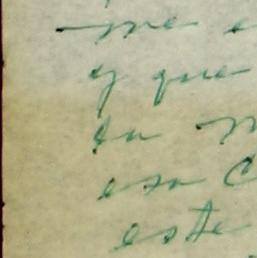 me
y que
su
esa
este